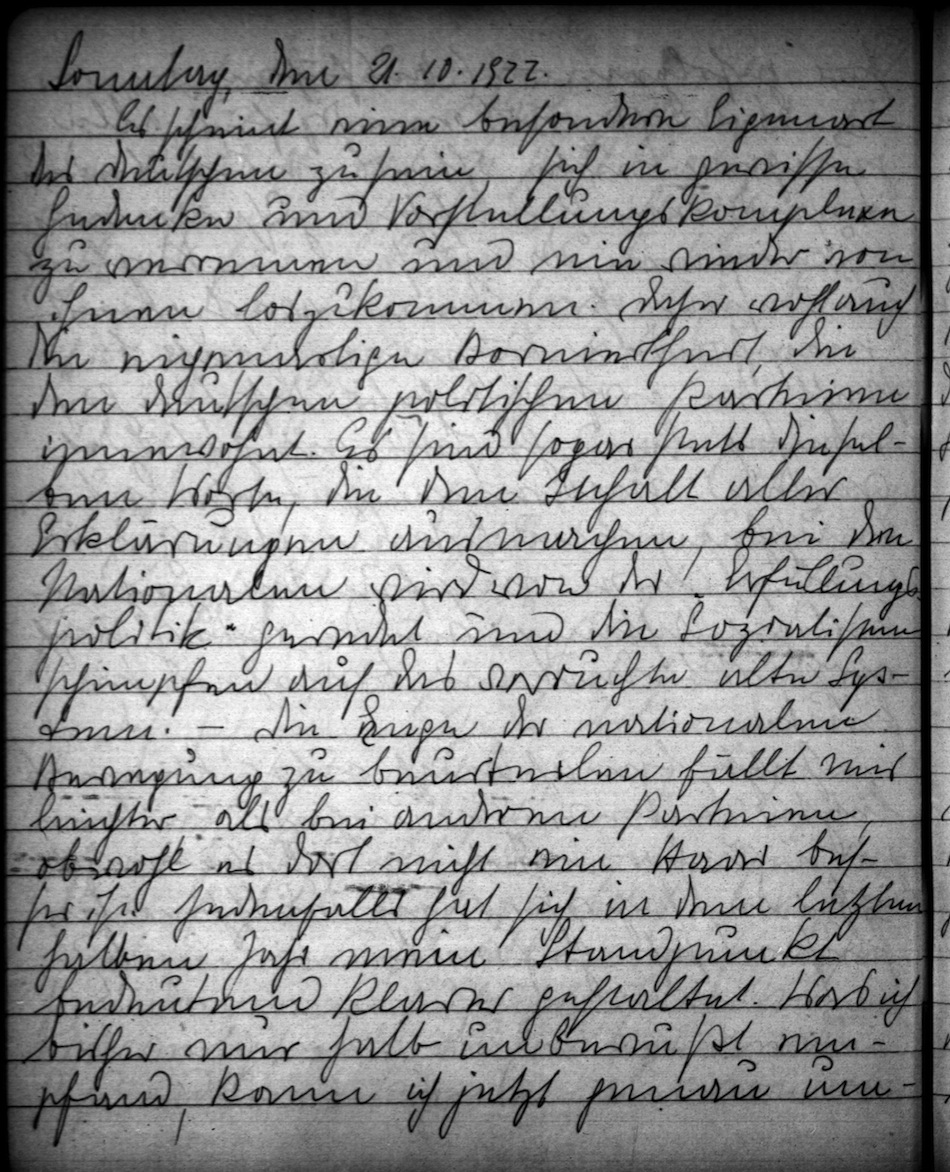 Sonntag, den 21. 10. 1922.
Es scheint eine besondere Eigenart
der Deutschen zu sein, sich in gewisse
Gedanken und Vorstellungskomplexe
zu verrennen und nie wieder von
ihnen loszukommen. Daher wohl auch
die eigenartige Borniertheit, die
den deutschen politischen Parteien
innewohnt. Es sind sogar stets diesel-
ben Worte, die den Inhalt aller
Erklärungen ausmachen, bei den
Nationalen wird von der "Erfüllungs-
politik" geredet und die Sozialisten
schimpfen auf das verruchte alte Sys-
tem. – Die Enge der nationalen
Bewegung zu beurteilen fällt mir
leichter als bei anderen Parteien,
obwohl es dort nicht ein Haar bes-
ser ist. Jedenfalls hat sich in dem letzten
halben Jahr mein Standpunkt
bedeutend klarer gestaltet. Was ich
bisher nur halb unbewußt em-
pfand, kann ich jetzt genau um-